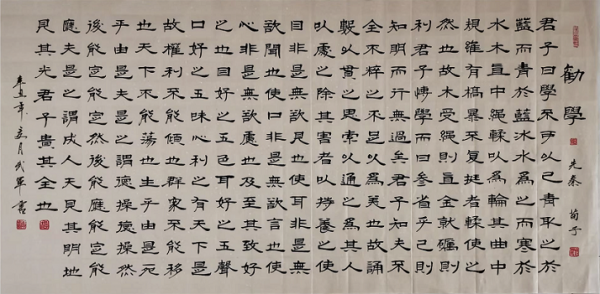 勸學
先秦 荀子
君子曰學不可以已青取之於
藍而青於藍冰水為之而寒於
水木直中繩輮以為輪其曲中
規雖有槁暴不復挺者輮使之
然也故木受繩則直金就礪則
利君子博學而日參省乎己則
知明而行無過矣君子知夫不
全不粹之不足以為美也故誦
數以貫之思索以通之為其人
以處之除其害者以持養之使
目非是無欲見也使耳非是無
欲聞也使口非是無欲言也使
心非是無欲慮也及至其致好
之也目好之五色耳好之五聲
口好之五味心利之有天下是
故權利不能傾也群眾不能移
也天下不能蕩也生乎由是死
乎由是夫是之謂德操德操然
後能定能定然後能應能定能
應夫是之謂成人天見其明地
見其光君子貴其全也
年 月武軍書